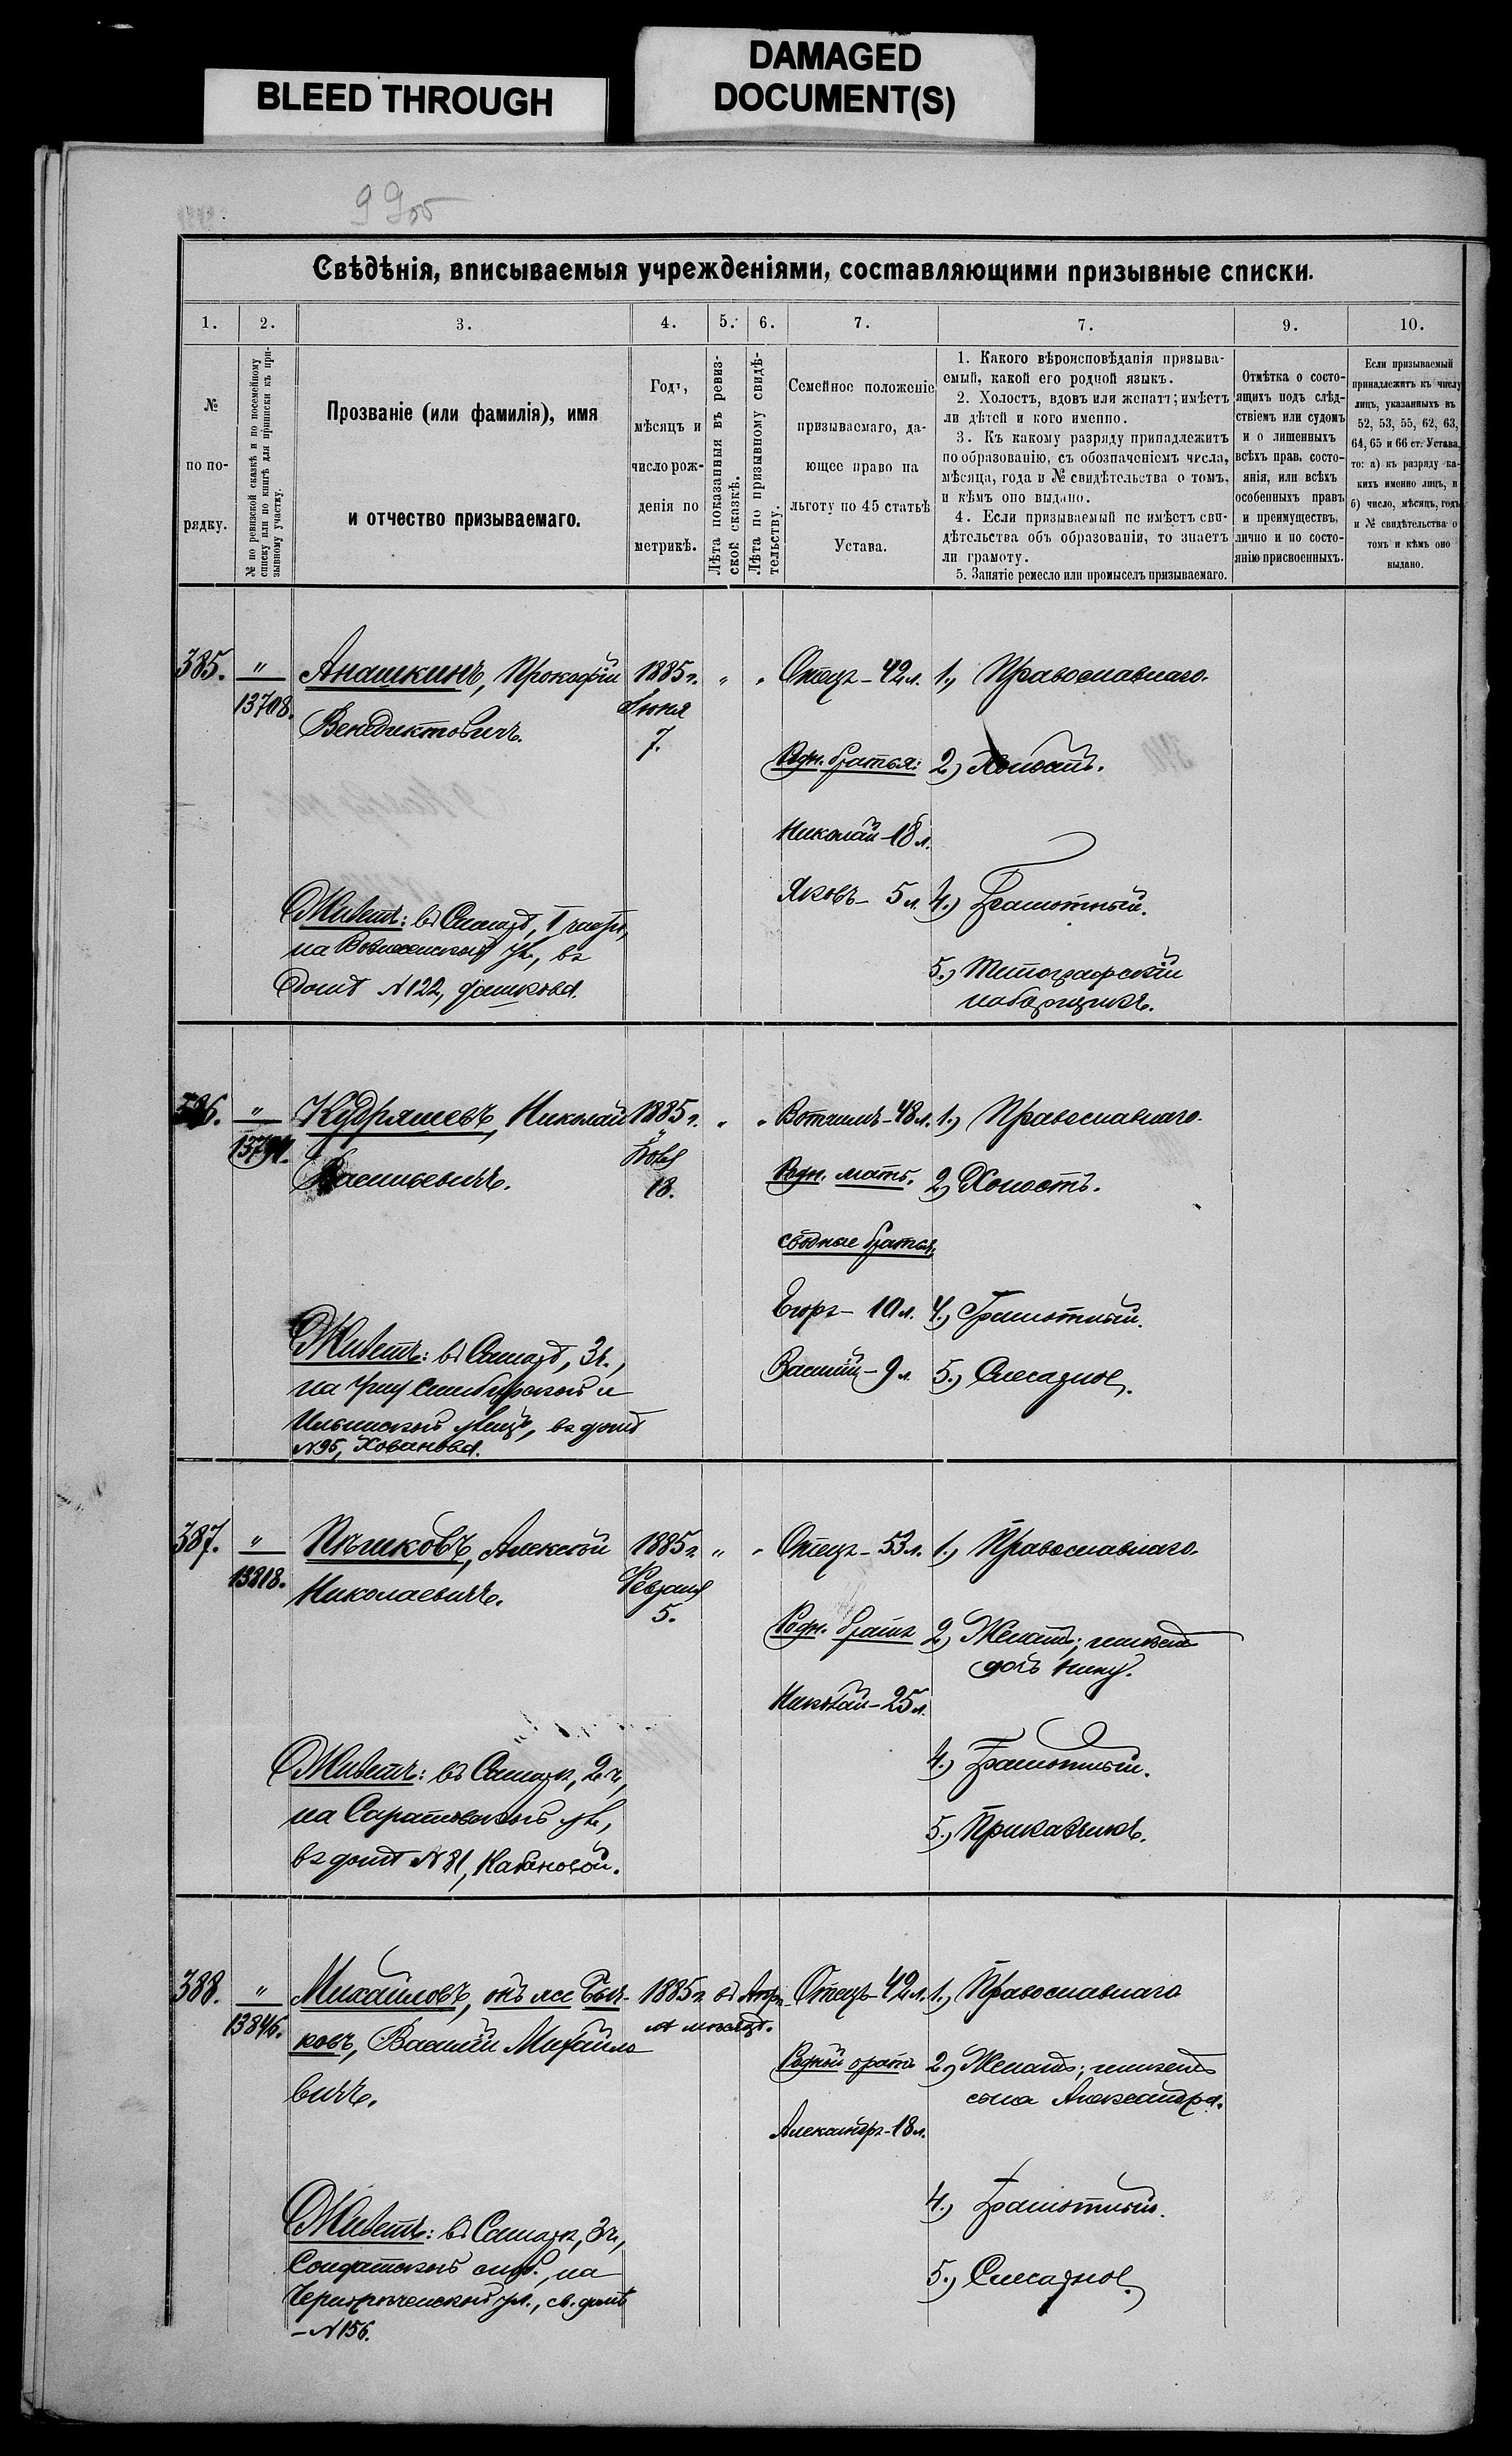 BLEED THROUGH
DAMAGED
DOCUMENT(S)
Свѣдѣнія, вписываемыя учрежденіями, составляющими призывные списки.
1. 2. 3. 4. 5. 6. 7. 7. 9. 10.
№
по по-
рядку.
№ по ревизской сказкѣ и по посемейному
списку или по книгѣ для приписки къ при-
зывному участку.
Прозваніе (или фамилія), имя
и отчество призываемаго.
Годъ,
мѣсяцъ и
число рож-
денія по
метрикѣ.
Лѣта показанныя въ ревиз-
ской сказкѣ.
Лѣта по призывному свидѣ-
тельству.
Семейное положеніе
призываемаго, да-
ющее право на
льготу по 45 статьѣ
Устава.
1. Какого вѣроисповѣданія призыва-
емый, какой его родной языкъ.
2. Холостъ, вдовъ или женатъ; имѣетъ
ли дѣтей и кого именно.
3. Къ какому разряду принадлежитъ
по образованію, съ обозначеніемъ числа,
мѣсяца, года и № свидѣтельства о томъ,
и кѣмъ оно выдано.
4. Если призываемый не имѣетъ сви-
дѣтельства объ образованіи, то знаетъ
ли грамоту.
5. Занятіе ремесло или промыселъ призываемаго.
Отмѣтка о состо-
ящихъ подъ слѣд-
ствіемъ или судомъ
и о лишенныхъ
всѣхъ прав. состо-
янія, или всѣхъ
особенныхъ правъ
и преимуществъ,
лично и по состо-
янію присвоенныхъ.
Если призываемый
принадлежитъ къ числу
лицъ, указанныхъ въ
52, 53, 55, 62, 63,
64, 65 и 66 ст. Устава,
то: а) къ разряду ка-
кихъ именно лицъ, и
б) число, мѣсяцъ, годъ
и № свидѣтельства о
томъ и кѣмъ оно
выдано.
385.
"
13708.
Анашкинъ, Прокофій
Венедиктовичъ.
1885 г.
Іюня
7.
" "
Отецъ - 42 л.
Родн. братья:
Николай - 18 л.
Яковъ - 5 л.
1., Православнаго.
2.) Холостъ.
4.) Грамотный.
5.) Типографскій
наборщикъ.
Живетъ: въ Самарѣ, 1 части,
на Вознесенской ул., въ
домѣ № 122,
386.
"
Кудряшевъ, Николай
Васильевичъ.
1885 г.
18.
" "
Вотчимъ - 48 л.
Родн. мать.
сводные братья,
Егоръ - 10 л.
Василій - 9 л.
1.) Православнаго.
2.) Холостъ.
4.) Грамотный.
5.) Слесарное.
Живетъ: въ Самарѣ, 3 ч.,
на углу Симбирской и
Ильинской улицъ, въ домѣ
№ 95, Хованова.
387.
"
13818.
Пѣшковъ, Алексѣй
Николаевичъ.
1885 г.
Февраля
5.
" "
Отецъ - 53 л.
Родн. братъ
Николай - 25 л.
1.) Православнаго.
2.) Женатъ; имѣетъ
дочь Нину.
4.) Грамотный.
5.) Приказчикъ.
Живетъ: въ Самарѣ, 2 ч.,
на Саратовской ул.,
въ домѣ № 81, Кабановой.
388.
"
13846.
Михайловъ, онъ же Быч-
ковъ, Василій Михайло
вичъ.
1885 г. въ Апрѣ-
лѣ мѣсяцѣ.
Отецъ - 42 л.
Родной братъ
Александръ - 18 л.
1., Православнаго
2.) Женатъ; имѣетъ
сына Александра.
4.) Грамотный.
5.) Слесарное.
Живетъ: въ Самарѣ, 3 ч.,
Солдатской слоб., на
Чернорѣченской ул., св. домѣ
- № 156.